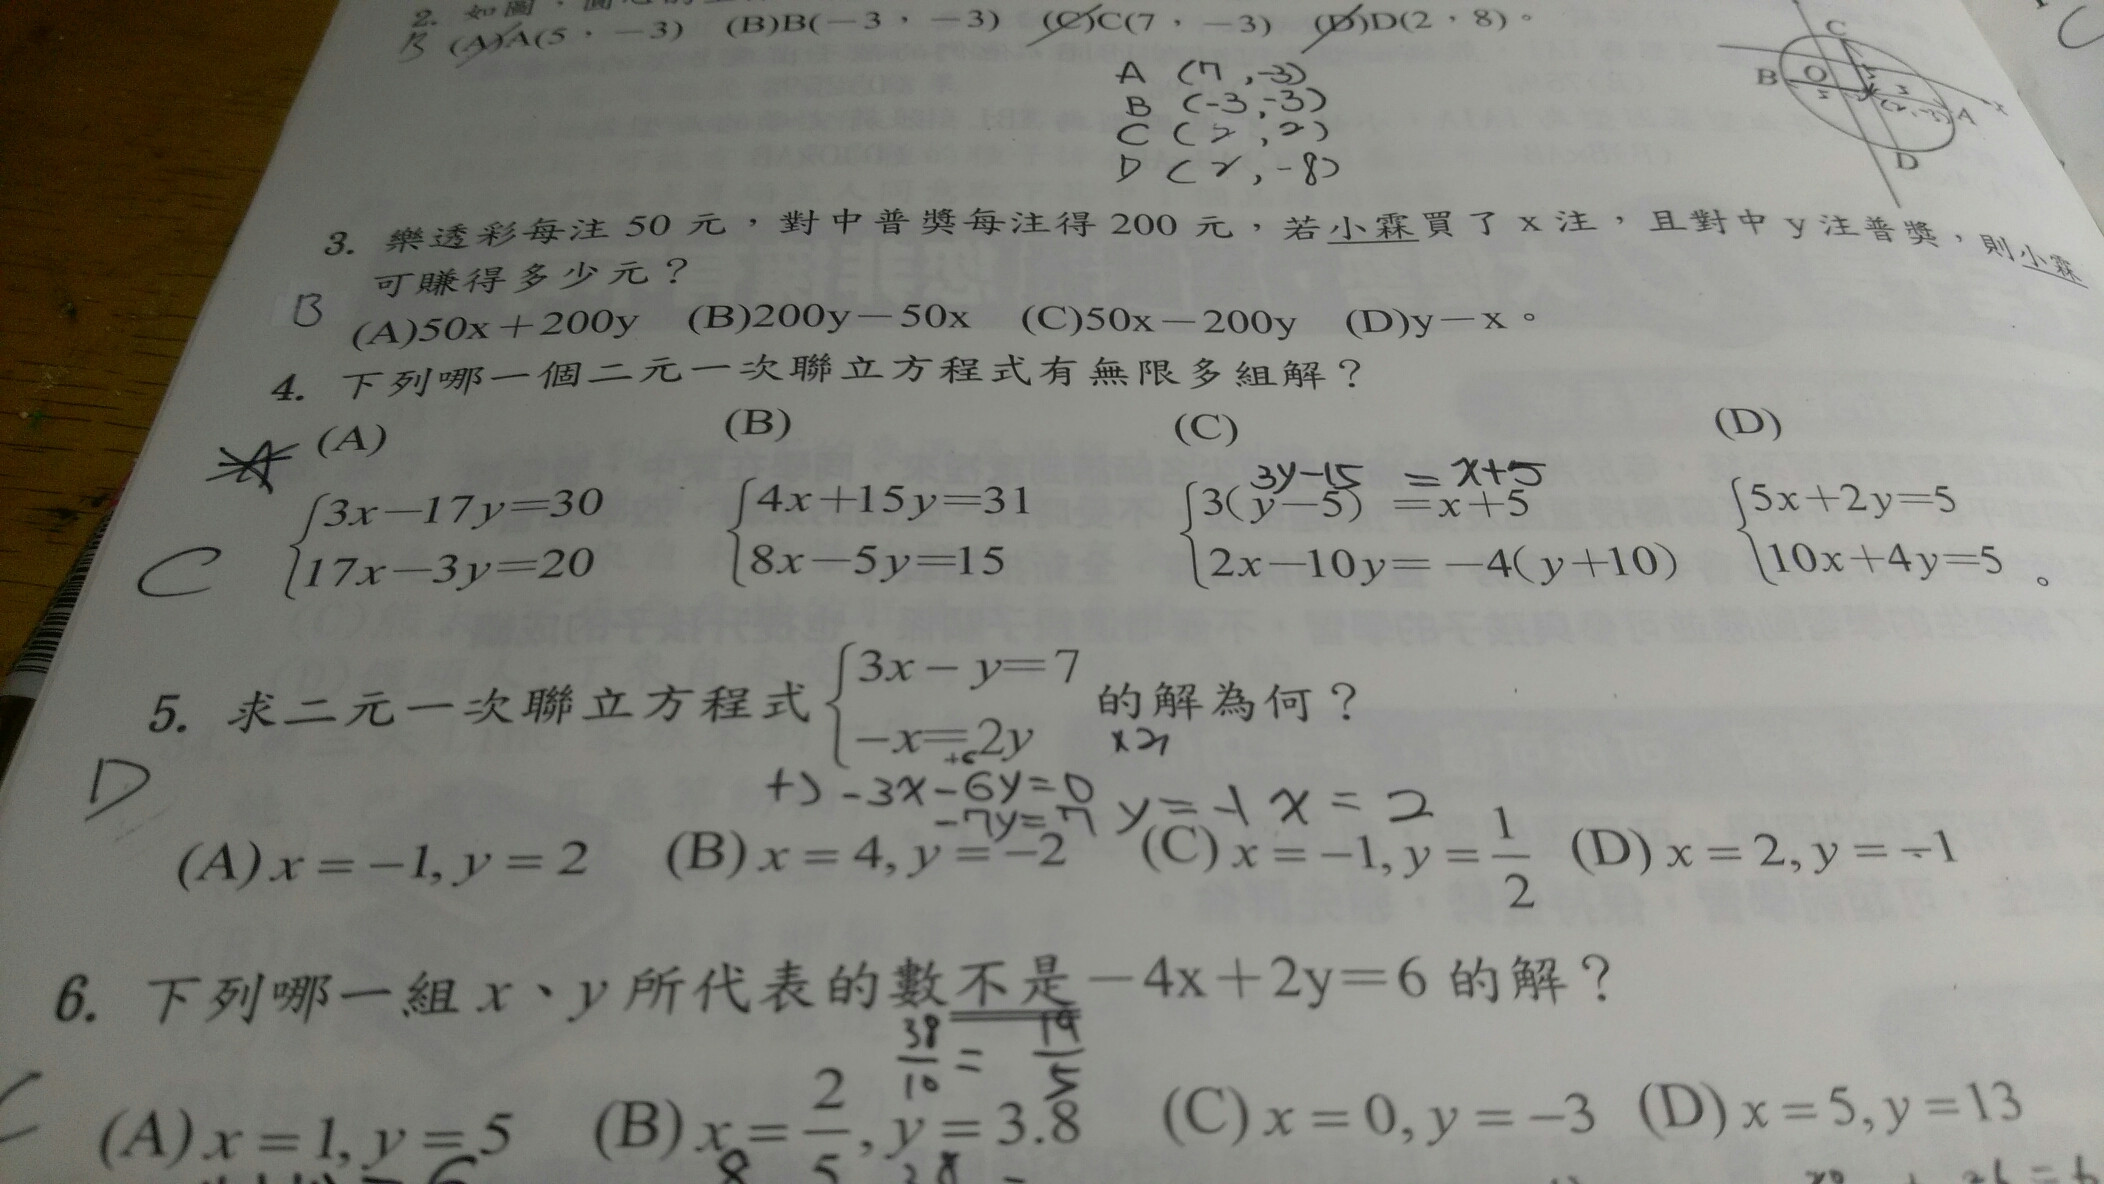 2. 如圖，圓心的
B (A)A(5，−3) (B)B(−3，−3) (C)C(7，−3) (D)D(2，8)。
A (7,-3)
B (-3,-3)
C (2,2)
D (2,-8)
C
B O A x
D
3. 樂透彩每注 50 元，對中普獎每注得 200 元，若小霖買了 x 注，且對中 y 注普獎，則小霖
可賺得多少元？
B (A)50x＋200y (B)200y－50x (C)50x－200y (D)y－x。
4. 下列哪一個二元一次聯立方程式有無限多組解？
(A) (B) (C) (D)
3y-15 = x+5
3x−17y=30 4x+15y=31 3(y−5) =x+5 5x+2y=5
C 17x−3y=20 8x−5y=15 2x−10y= −4(y+10) 10x+4y=5 。
3x− y=7
5. 求二元一次聯立方程式 的解為何？
−x=2y
D +) -3x-6y=0
-7y=7 y=-1 x=2
(A) x = −1, y = 2 (B) x = 4, y = −2 (C) x = −1, y = 1/2 (D) x = 2, y = −1
6. 下列哪一組 x、y 所代表的數不是－4x＋2y＝6 的解？
38/10 = 19/5
C (A) x = 1, y = 5 (B) x = 2/5, y = 3.8 (C) x = 0, y = −3 (D) x = 5, y = 13